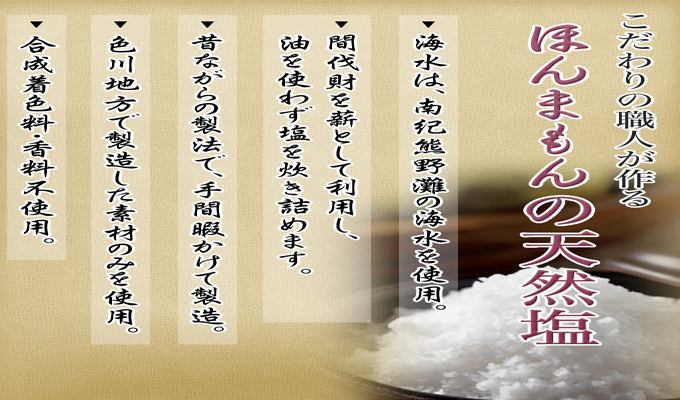 こだわりの職人が作る
ほんまもんの天然塩
海水は、南紀熊野灘の海水を使用。
間伐財を薪として利用し、
油を使わず塩を炊き詰めます。
昔ながらの製法で、手間暇かけて製造。
色川地方で製造した素材のみを使用。
合成着色料・香料不使用。